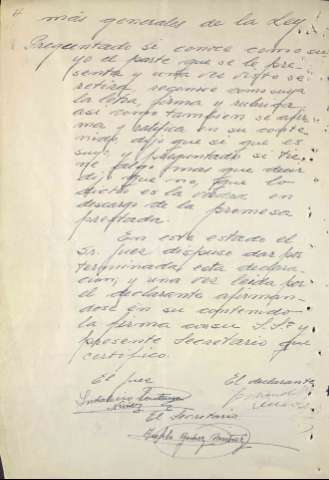 4
más generales de la Ley
Preguntado si conoce como su
yo el parte que se le pre-
senta y una vez visto se
retira reconoce como suya
la letra, firma y rubrica
asi como tambien se afir
ma y ratifica en su conte
nido, dijo que si que es
suyo, y preguntado si tie
ne algo mas que decir
dijo que no, que lo
dicho es la verdad en
descargo de la promesa
prestada.
En este estado el
Sr. Juez dispuso dar por
terminada esta declara
cion, y una vez leida por
el declarante afirman-
dose en su contenido
la firma con su S.Sª y
presente Secretario que
certifico.
El juez
El declarante
El Secretario